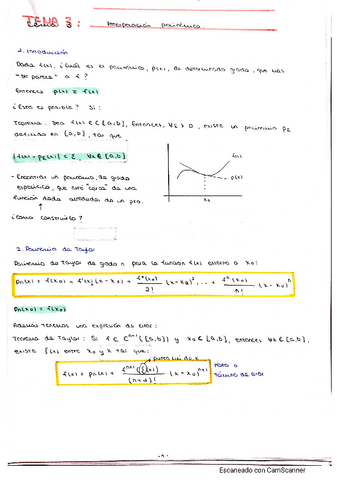 TEMA 3: Interpolación polinómica.
1. Introducción
Dada f(x), ¿Cuál es el polinomio, p(x), de determinado grado, que más
"se parece" a f?
Entonces p(x) ≈ f(x)
¿Esto es posible? Sí:
Teorema: Sea f(x) ∈ C[a,b], Entonces, ∀ε > 0, existe un polinomio pε
definido en [a,b], tal que
|f(x) - pε(x)| < ε, ∀x ∈ [a,b]
f(x)
p(x)
x₀
- Encontrar un polinomio, de grado
específico, que esté "cerca" de una
función dada alrededor de un pto.
¿Como construirlo?
2. Polinomio de Taylor
Polinomio de Taylor de grado n para la función f(x) entorno a x₀:
pn(x) = f(x₀) + f'(x)(x-x₀) + f''(x₀)/2! (x-x₀)² ... + fⁿ(x₀)/n! (x-x₀)ⁿ
pn(x₀) = f(x₀)
Además tenemos una expresión de error:
Teorema de Taylor: Si f ∈ Cⁿ⁺¹([a,b]) y x₀ ∈ [a,b], entonces ∀x ∈ [a,b],
existe ξ(x) entre x₀ y x tal que:
f(x) = pn(x) + fⁿ⁺¹(ξ(x))/(n+1)! (x-x₀)ⁿ⁺¹
término de error
-1-
Escaneado con CamScanner